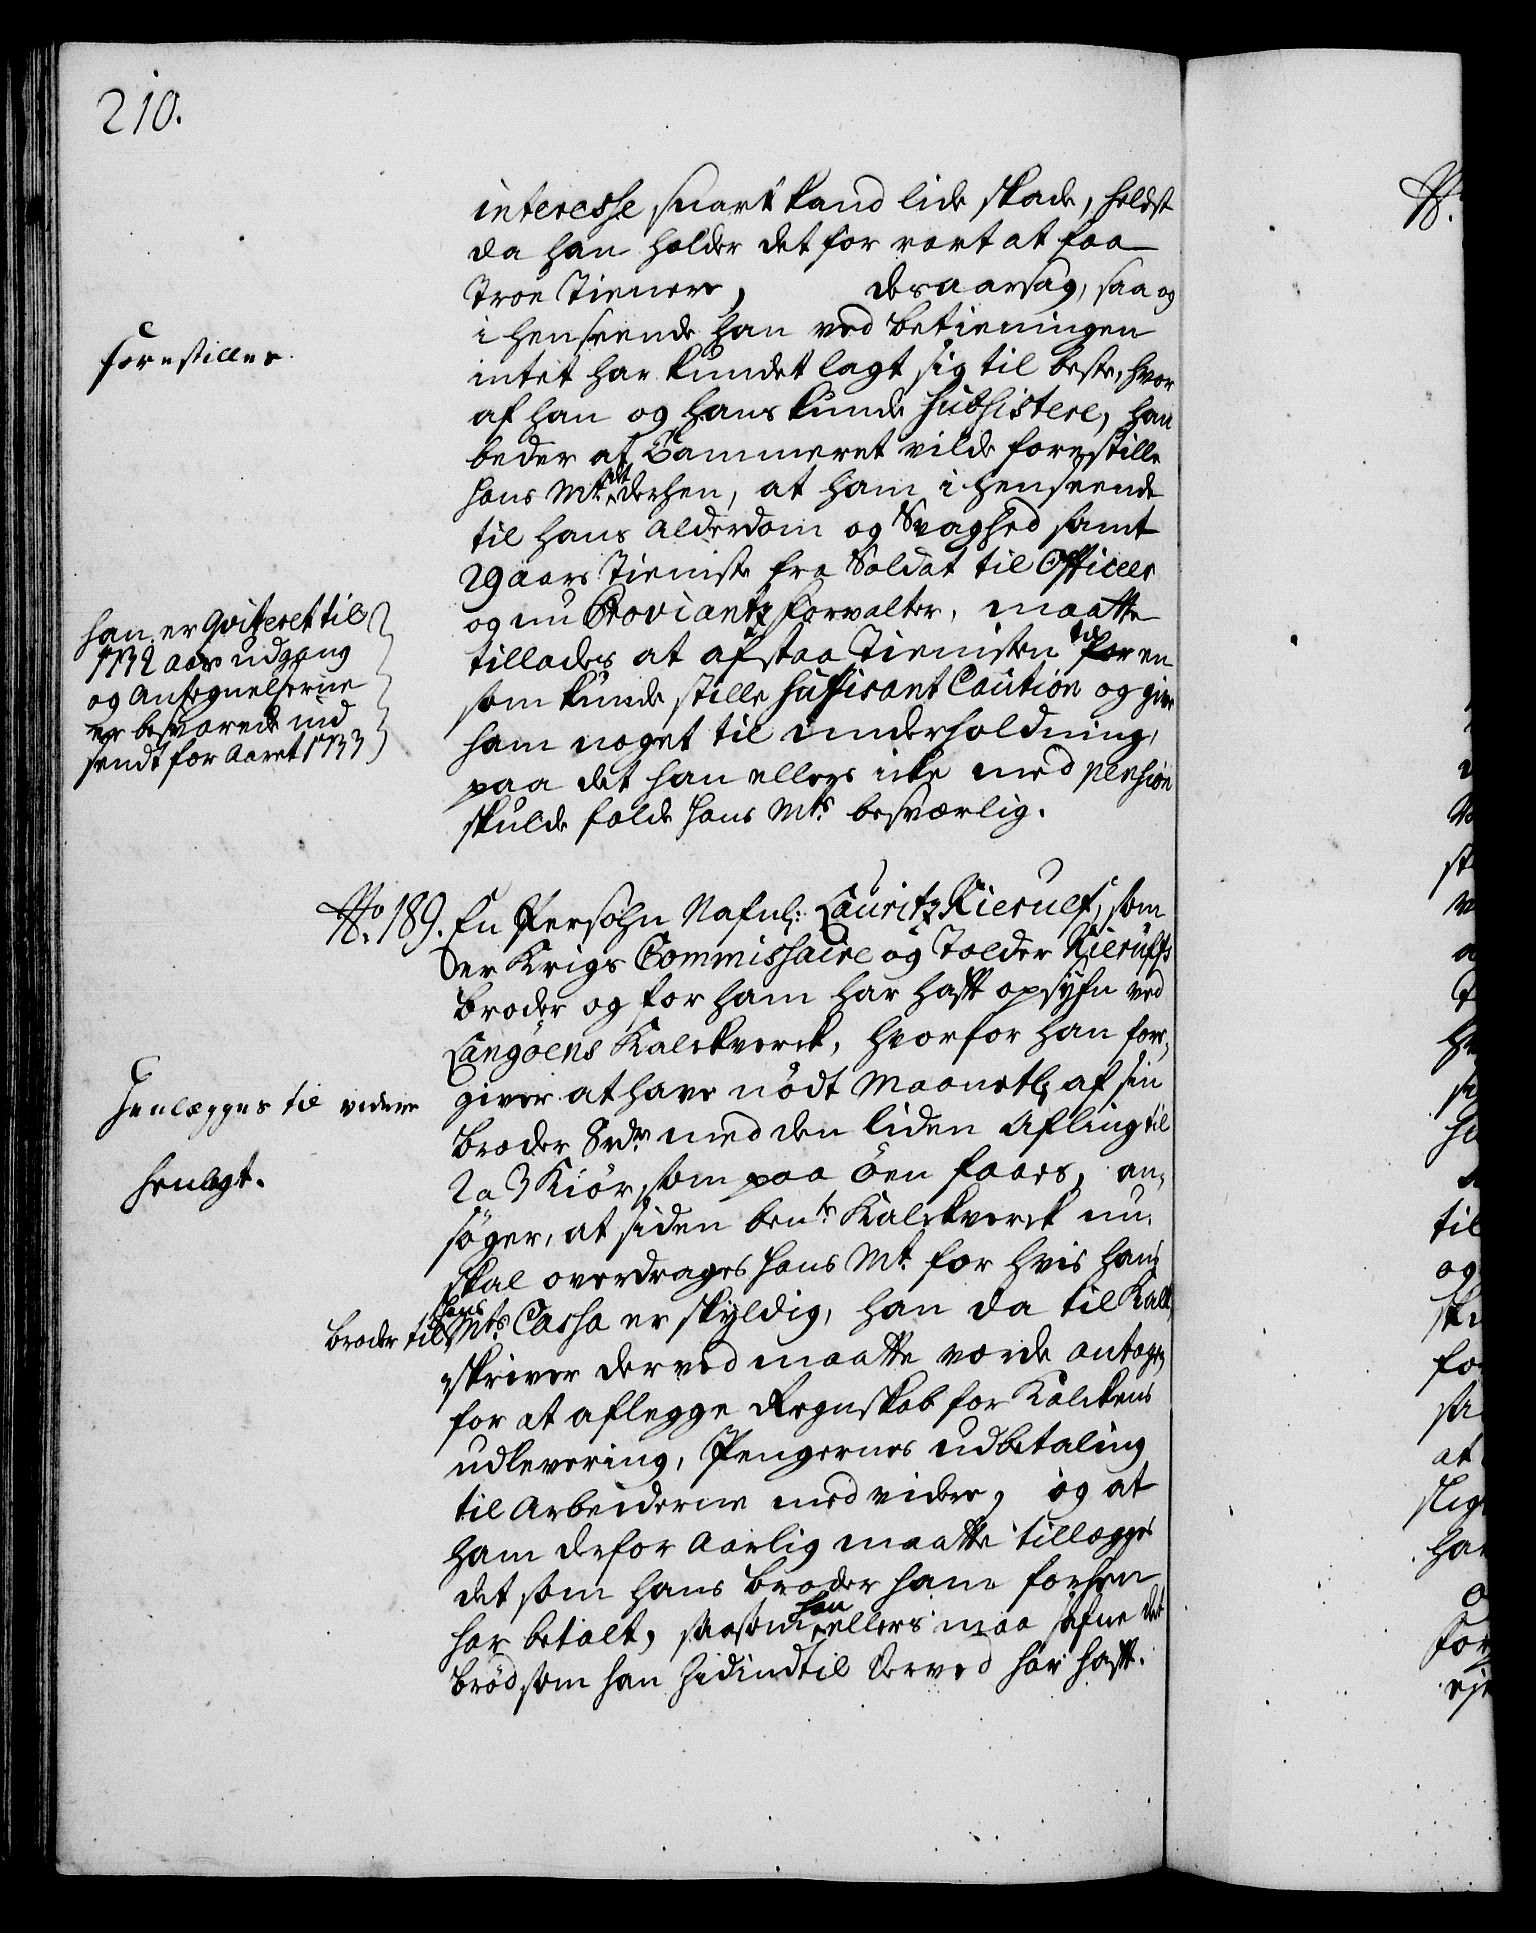 210.
interesse snart kand lide skade, helst
da han holder det for rart at faa
Troe Tienere, desaarsag, saa og
i henseende han ved betieningen
intet har kundet lagt sig til beste, hvor
af han og hans kunde subsistere, han
beder at Cammeret vilde forestille
hans Mt. det derhen, at ham i henseende
til hans alderdom og Svaghed samt
29 aars Tieniste fra Soldat til Officeer
og nu Proviantz forvalter, maatte
tillades at afstaa Tienisten til en
som kunde stille suffisant Caution og give
ham noget til underholdning,
paa det han ellers icke med pension
skulde falde hans Mts. besværlig.
Forestilles
han er qviteret til
1732 aars udgang
og Antegnelserne
er besvarede ind
sendt for Aaret 1733
No. 189. En Persohn Nafnl: Lauritz Kierulf, som
er Krigs Commissaire og Tolder Kierulfs
broder og for ham har hafft opsyhn ved
Langöens Kalckverck, hvorfor han for-
giver at have nödt Maanetl. af sin
broder 8 rdr. med den liden Afling til
2 a 3 Kiör, som paa öen faaes, an-
söger, at siden bente. Kalckverck nu
skal overdrages hans Mt. for hvis hans
broder til hans Mts. Cassa er skyldig, han da til Kalk-
skriver derved maatte vorde antagen
for at aflegge Regnskab for Kalckens
udlevering, Pengernes udbetaling
til Arbeiderne med videre, og at
ham defor Aarlig maatte tillægges
det som hans broder ham forhen
har betalt, saasom han ellers maa safne det
bröd, som han hidindtil derved har hafft.
Henlægges til videre
henlagt.